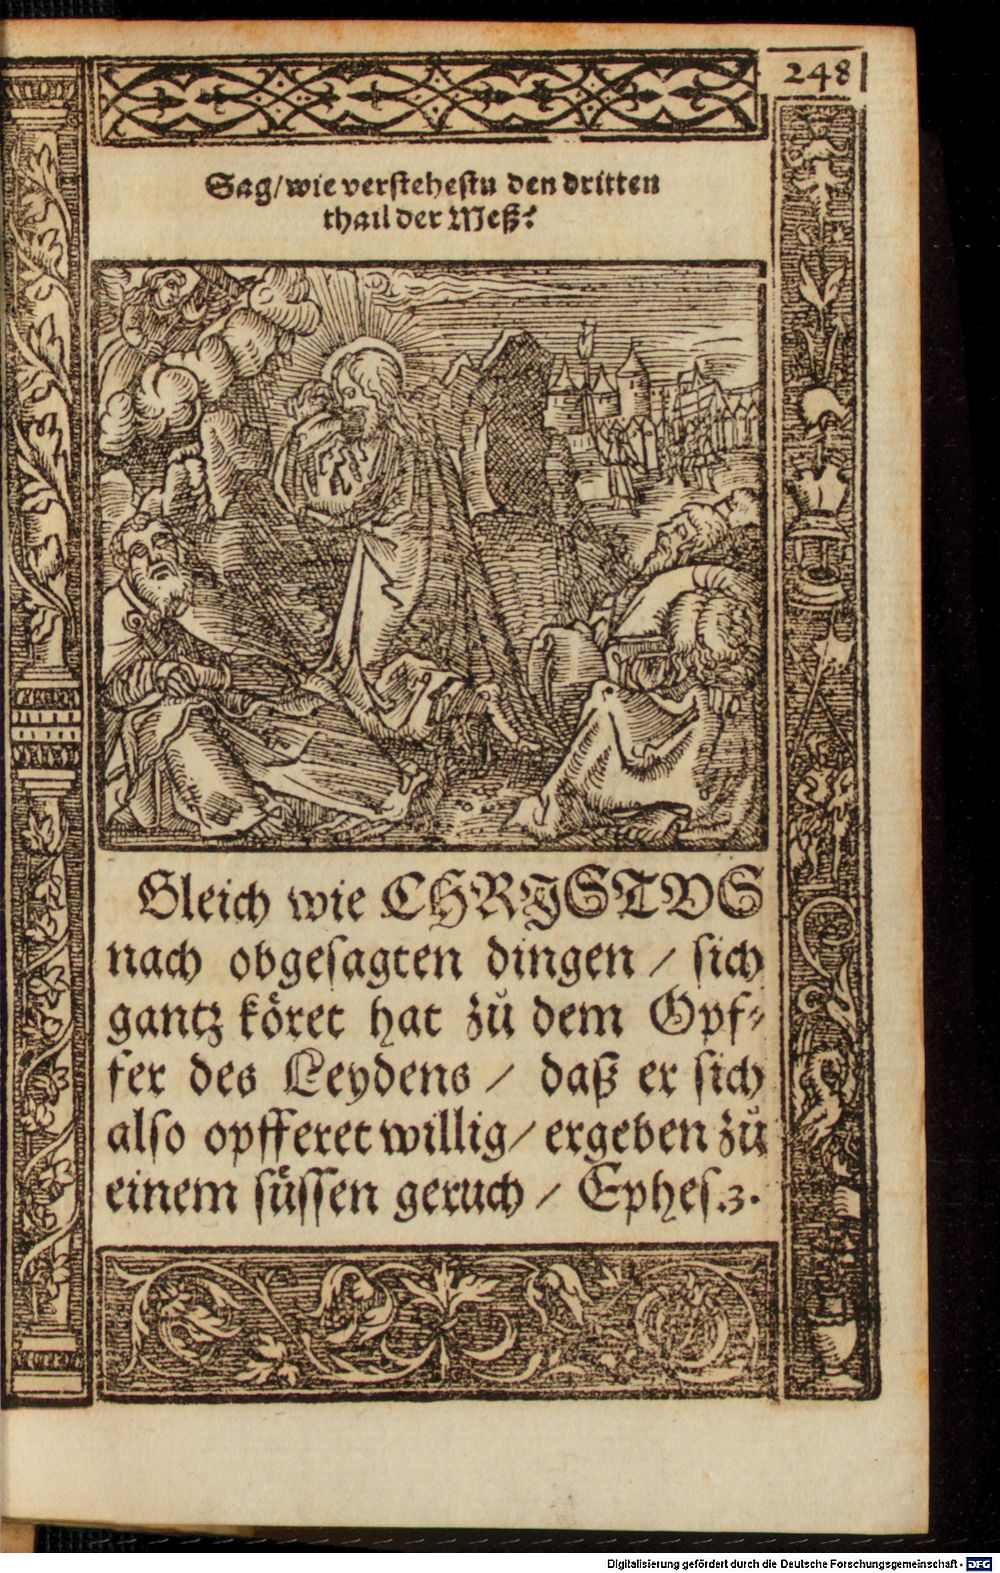 248
Sag/wie verstehestu den dritten
thail der Meß?
Gleich wie CHRJSTVS
nach obgesagten dingen / sich
gantz köret hat zů dem Opf-
fer des Leydens / daß er sich
also opfferet willig/ ergeben zů
einem süssen geruch / Ephes.3.
Digitalisierung gefördert durch die Deutsche Forschungsgemeinschaft - DFG